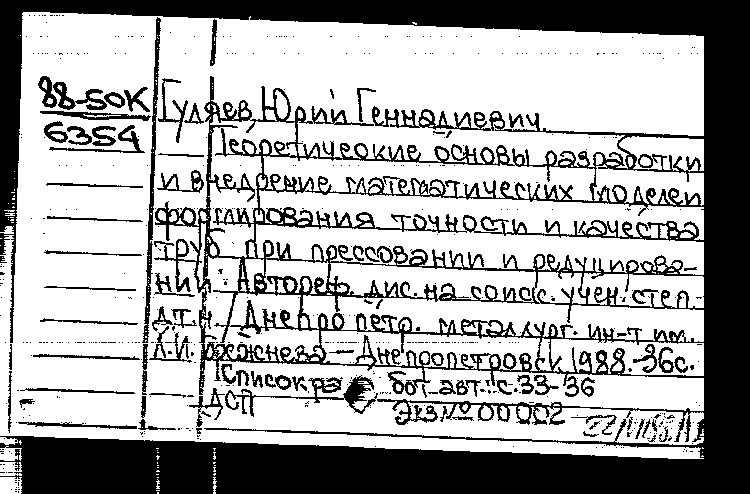 88-50К
6354
Гуляев, Юрий Геннадиевич.
Теоретические основы разработки
и внедрение математических моделей
формирования точности и качества
труб при прессовании и редуцирова-
нии. Автореф. дис. на соиск. учен. степ.
д.т.н. / Днепропетр. металлург. ин-т им.
Л.И. Брежнева - Днепропетровск 1988. - 36с.
Список ра бот авт.: с.33-36
ДСП Экз № 00002